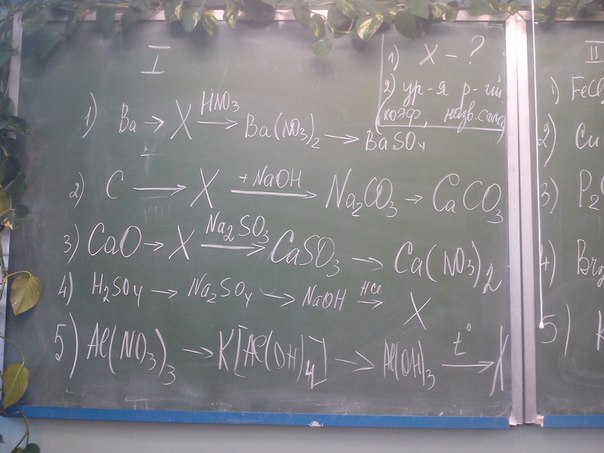 I
1) X - ?
2) ур-я р-ий
коэф, назв. солей
1) Ba → X HNO3→ Ba(NO3)2 → BaSO4
2) C → X +NaOH→ Na2CO3 → CaCO3
3) CaO → X Na2SO3→ CaSO3 → Ca(NO3)2
4) H2SO4 → Na2SO4 → NaOH HCl→ X
5) Al(NO3)3 → K[Al(OH)4] → Al(OH)3 t°→ X
II
1) FeCl
2) Cu
3) P2
4)
5) K